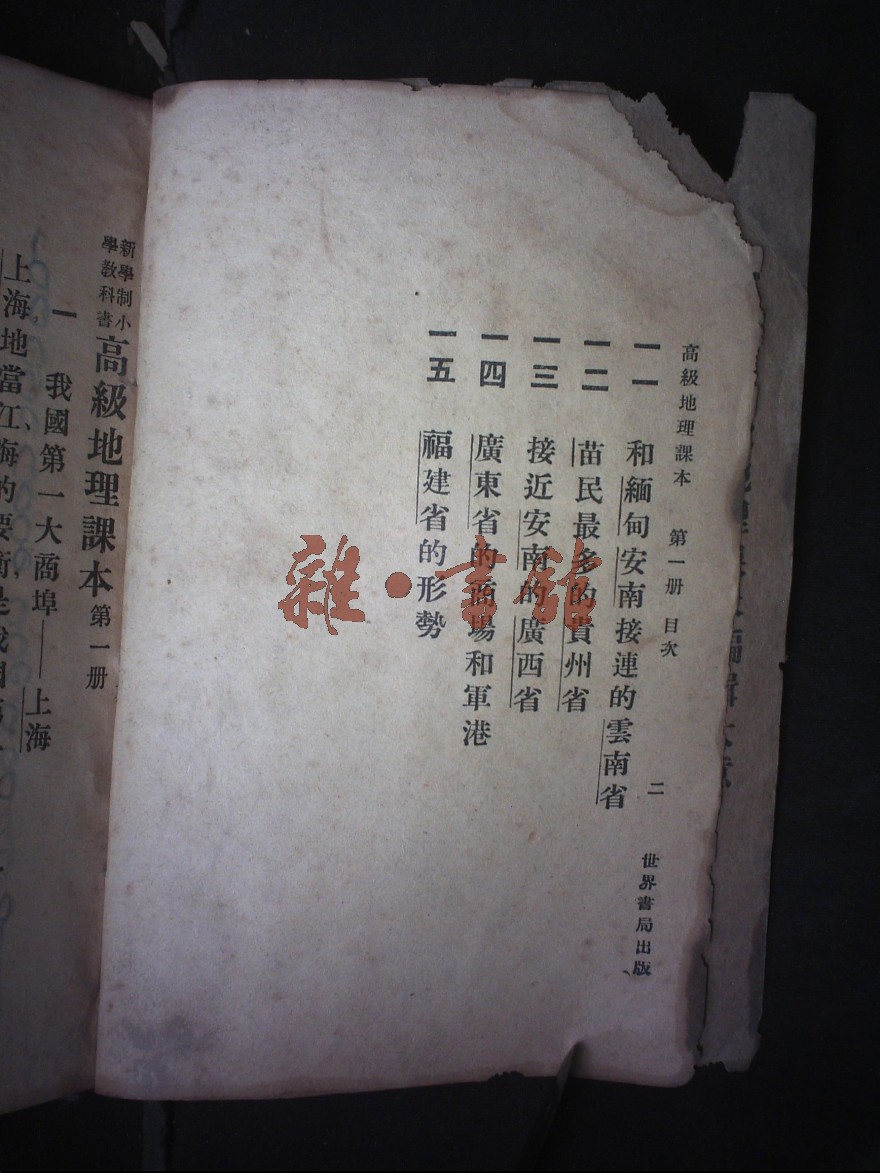 高級地理課本 第一册 目次 二 世界書局出版
一一 和緬甸安南接連的雲南省
一二 苗民最多的貴州省
一三 接近安南的廣西省
一四 廣東省的商場和軍港
一五 福建省的形勢
雜·書館
新學制小
學教科書
高級地理課本 第一册
一 我國第一大商埠——上海
上海地當江、海的要衝是我國